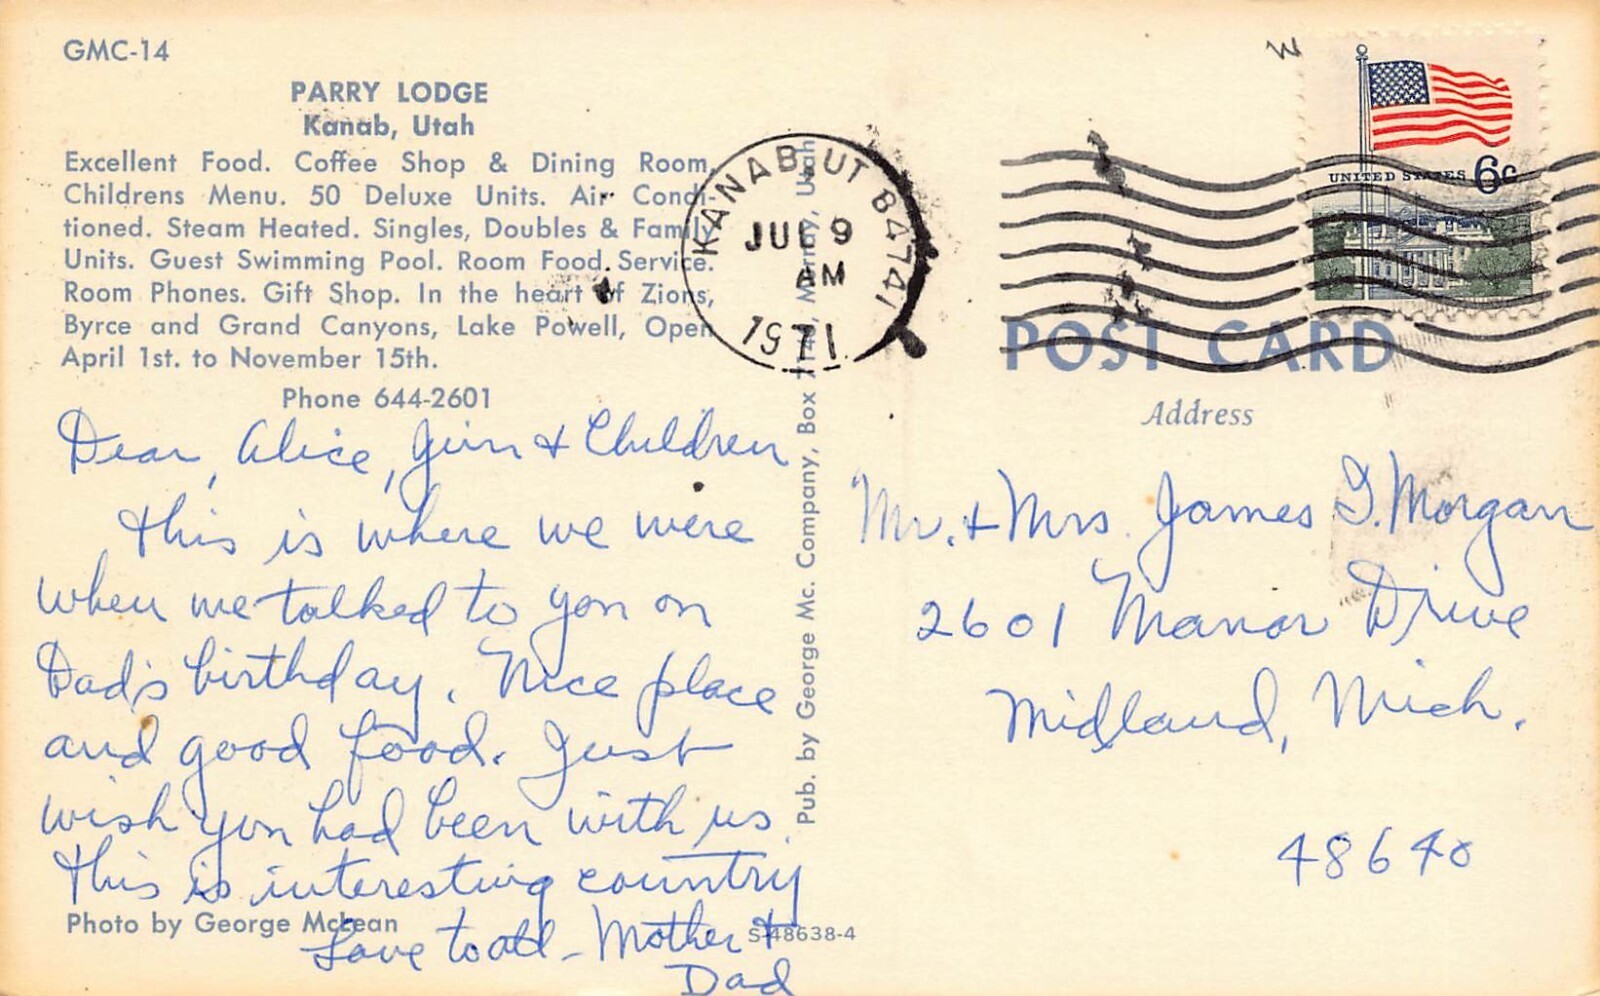 GMC-14
PARRY LODGE
Kanab, Utah
Excellent Food. Coffee Shop & Dining Room,
Childrens Menu. 50 Deluxe Units. Air Condi-
tioned. Steam Heated. Singles, Doubles & Family
Units. Guest Swimming Pool. Room Food Service.
Room Phones. Gift Shop. In the heart of Zions,
Byrce and Grand Canyons, Lake Powell, Open
April 1st. to November 15th.
Phone 644-2601
Dear, Alice, Jim & Children
This is where we were
when we talked to you on
Dad's birthday. Nice place
and good food. Just
wish you had been with us.
This is interesting country
Love to all - Mother &
Dad
Photo by George McLean
S-48638-4
Pub. by George Mc. Company, Box Murray, Utah
KANAB, UT 84741
JUL 9
AM
1971
UNITED STATES 6c
POST CARD
Address
Mr. & Mrs. James G. Morgan
2601 Manor Drive
Midland, Mich.
48640